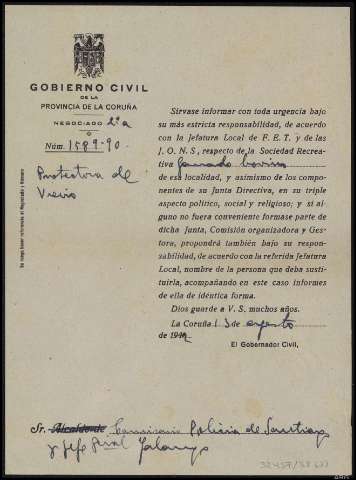 GOBIERNO CIVIL
DE LA
PROVINCIA DE LA CORUÑA
NEGOCIADO 2º
Núm. 1589-90.
Protectora de
Al recaer hacer referencia al Negociado y Número
Sírvase informar con toda urgencia bajo
su más estricta responsabilidad, de acuerdo
con la Jefatura Local de F. E. T. y de las
J. O. N. S., respecto de la Sociedad Recrea-
tiva ganado bovino
de esa localidad, y asimismo de los compo-
nentes de su Junta Directiva, en su triple
aspecto político, social y religioso; y si al-
guno no fuera conveniente formase parte de
dicha Junta, Comisión organizadora y Ges-
tora, propondrá también bajo su respon-
sabilidad, de acuerdo con la referida Jefatura
Local, nombre de la persona que deba susti-
tuirla, acompañando en este caso informes
de ella de idéntica forma.
Dios guarde a V. S. muchos años.
La Coruña 13 de agosto
de 194
El Gobernador Civil,
Sr. Alcalde de Comisario Policia de Santiago
y Jefe